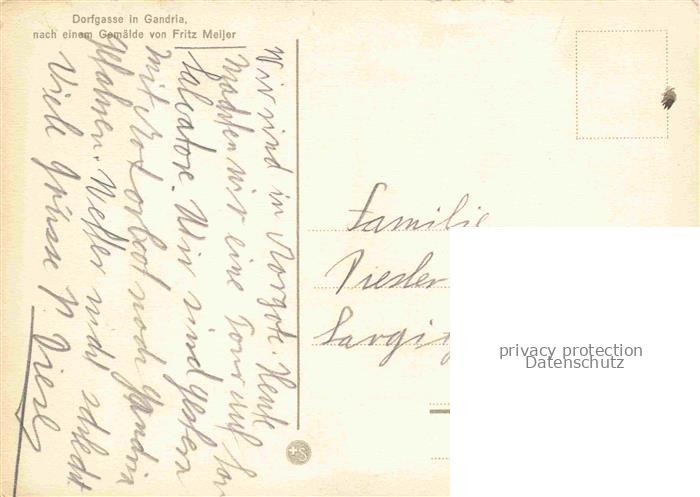 Dorfgasse in Gandria,
nach einem Gemälde von Fritz Meijer
Wir sind in Morgote. Heute
machten wir eine Tour auf San
Salvatore. Wir sind gestern
mit Motorboot nach Gandria
gefahren. Wetter nicht schlecht
Viele Grüsse
Familie
privacy protection
Datenschutz